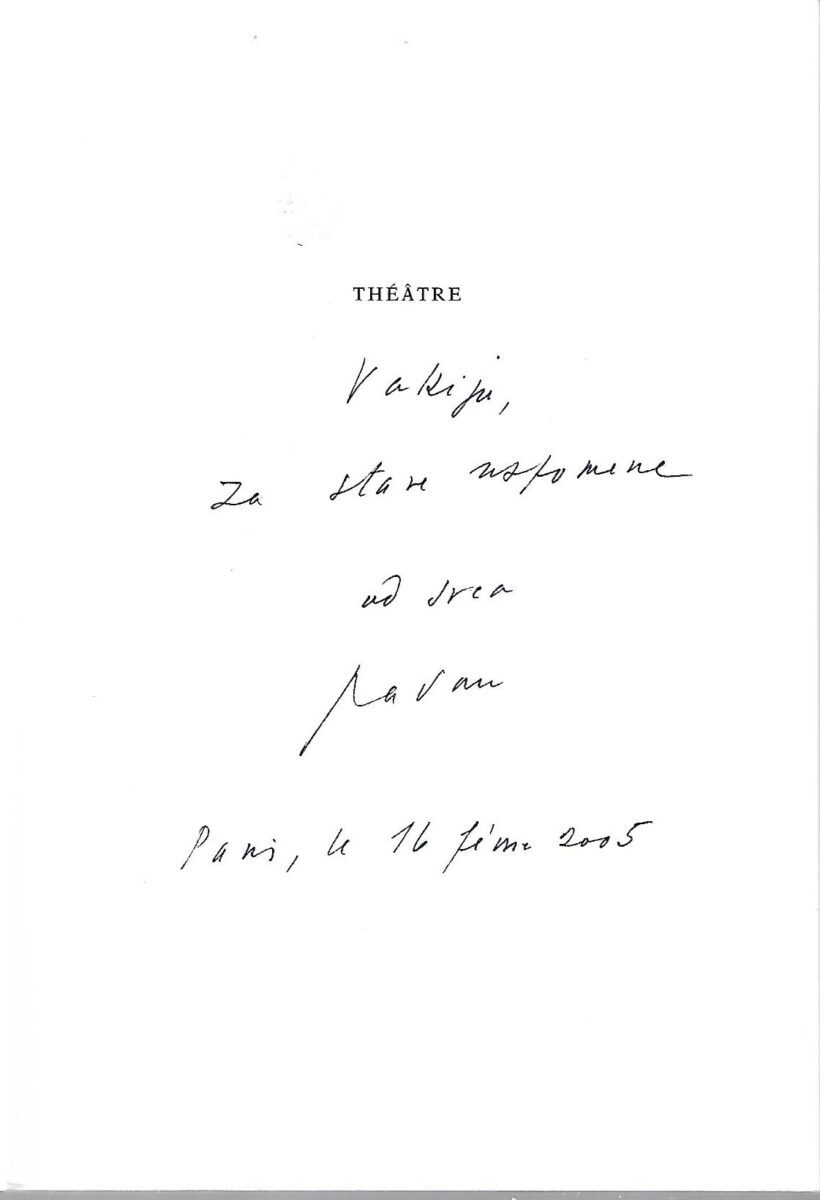 THÉÂTRE
Vakiju,
za stare uspomene
od srca
Paris, le 16 févr. 2005